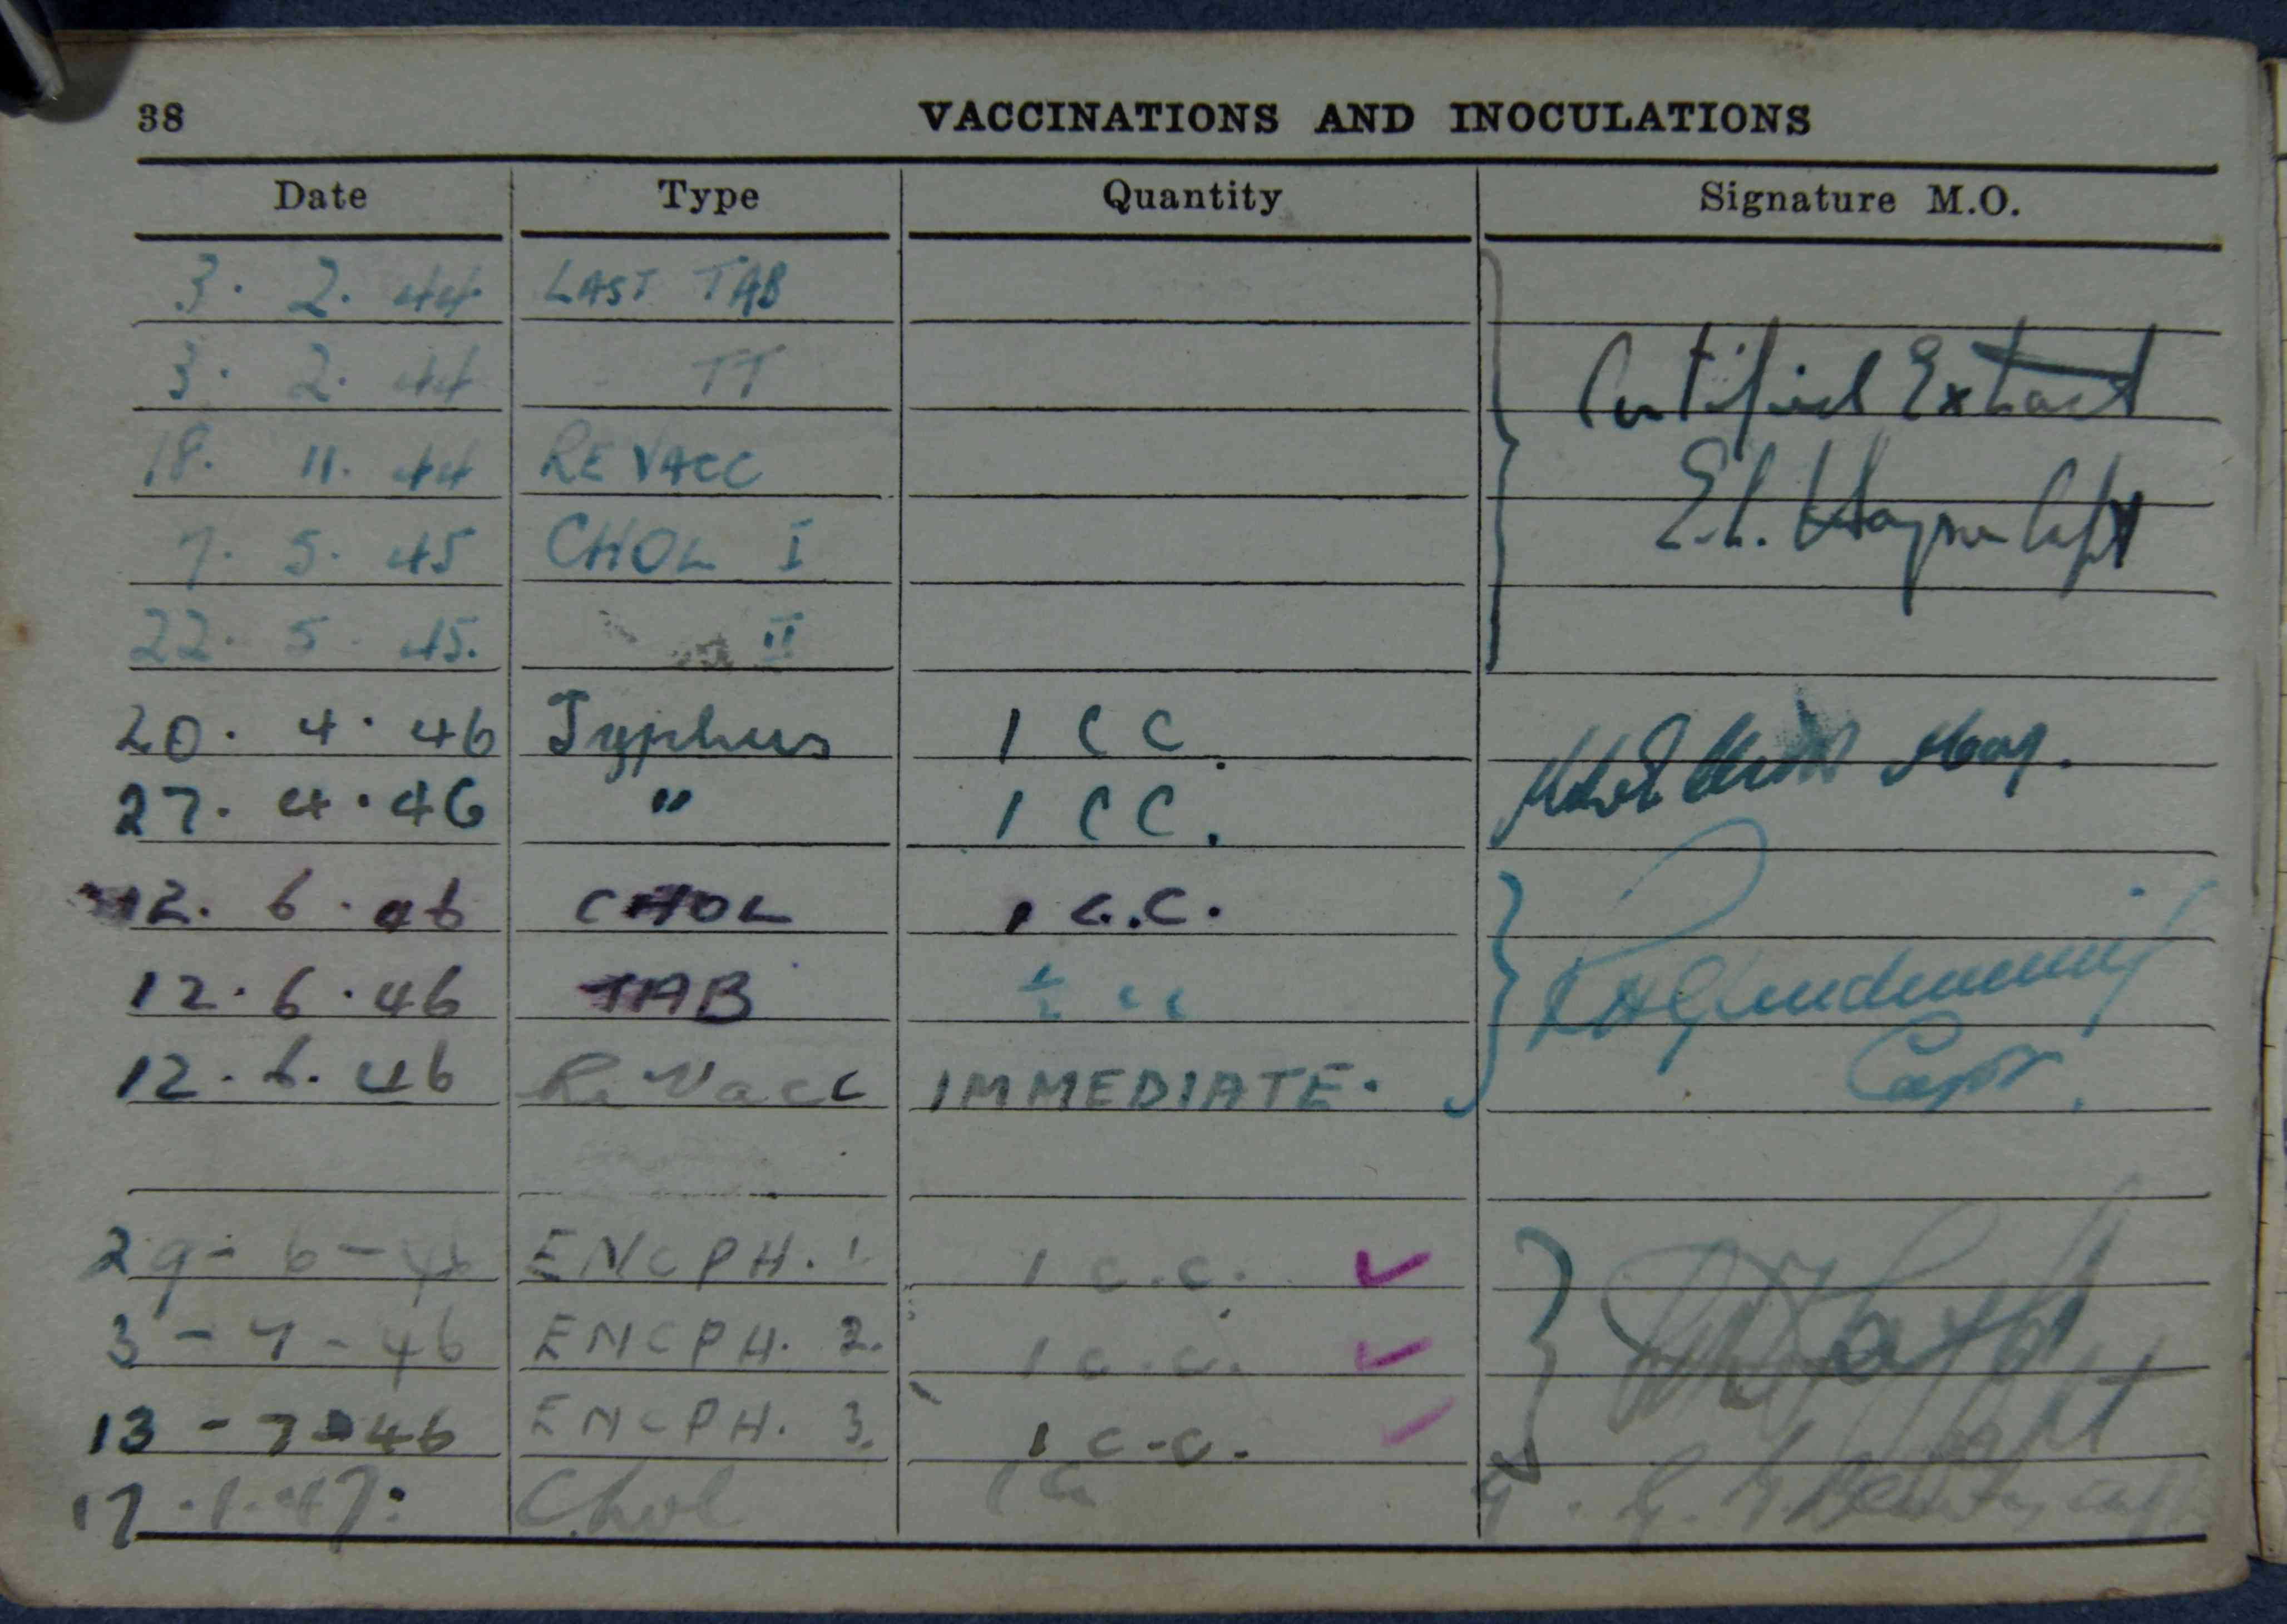 38 VACCINATIONS AND INOCULATIONS
Date Type Quantity Signature M.O.
3. 2. 44 LAST TAB
3. 2. 44 TT Certified Extract
18. 11. 44 RE VACC
7. 5. 45 CHOL I Capt
22. 5. 45. II
20. 4. 46 Typhus 1 CC.
27. 4. 46 " 1 CC.
12. 6. 46 CHOL 1 C.C.
12. 6. 46 TAB ½ cc
12. 6. 46 Re Vacc IMMEDIATE. Capt.
29-6-46 ENCPH. 1 1 c.c. ✓
3-7-46 ENCPH. 2. 1 c.c. ✓
13-7-46 ENCPH. 3. 1 c.c. ✓ Capt
17.1.47: Chol 1 cc